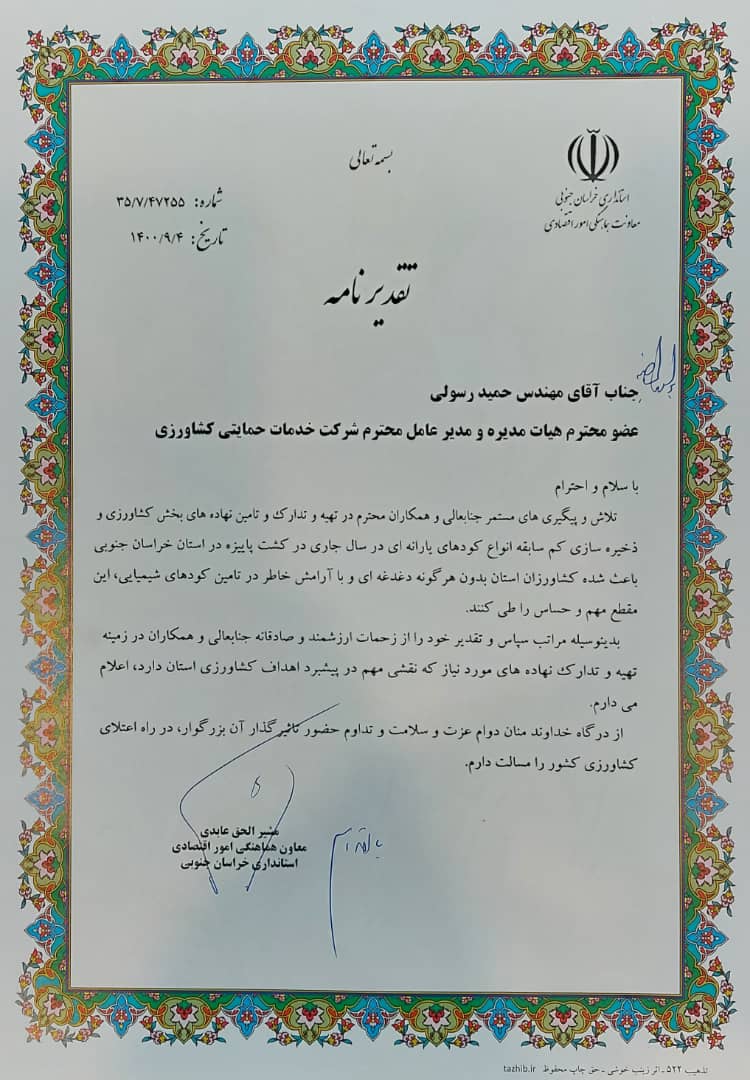 بسمه تعالی
استانداری خراسان جنوبی
معاونت هماهنگی امور اقتصادی
شماره: ۳۵/۷/۴۷۲۵۵
تاریخ: ۱۴۰۰/۹/۴
تقدیرنامه
جناب آقای مهندس حمید رسولی
عضو محترم هیات مدیره و مدیر عامل محترم شرکت خدمات حمایتی کشاورزی
با سلام و احترام
تلاش و پیگیری های مستمر جنابعالی و همکاران محترم در تهیه و تدارک و تامین نهاده های بخش کشاورزی و
ذخیره سازی کم سابقه انواع کودهای یارانه ای در سال جاری در کشت پاییزه در استان خراسان جنوبی
باعث شده کشاورزان استان بدون هرگونه دغدغه ای و با آرامش خاطر در تامین کودهای شیمیایی، این
مقطع مهم و حساس را طی کنند.
بدینوسیله مراتب سپاس و تقدیر خود را از زحمات ارزشمند و صادقانه جنابعالی و همکاران در زمینه
تهیه و تدارک نهاده های مورد نیاز که نقشی مهم در پیشبرد اهداف کشاورزی استان دارد، اعلام
می دارم.
از درگاه خداوند منان دوام عزت و سلامت و تداوم حضور تاثیرگذار آن بزرگوار، در راه اعتلای
کشاورزی کشور را مسالت دارم.
مشیر الحق عابدی
معاون هماهنگی امور اقتصادی
استانداری خراسان جنوبی
تذهیب ۵۲۲ ـ اثر زینب خوشی ـ حق چاپ محفوظ tazhib.ir